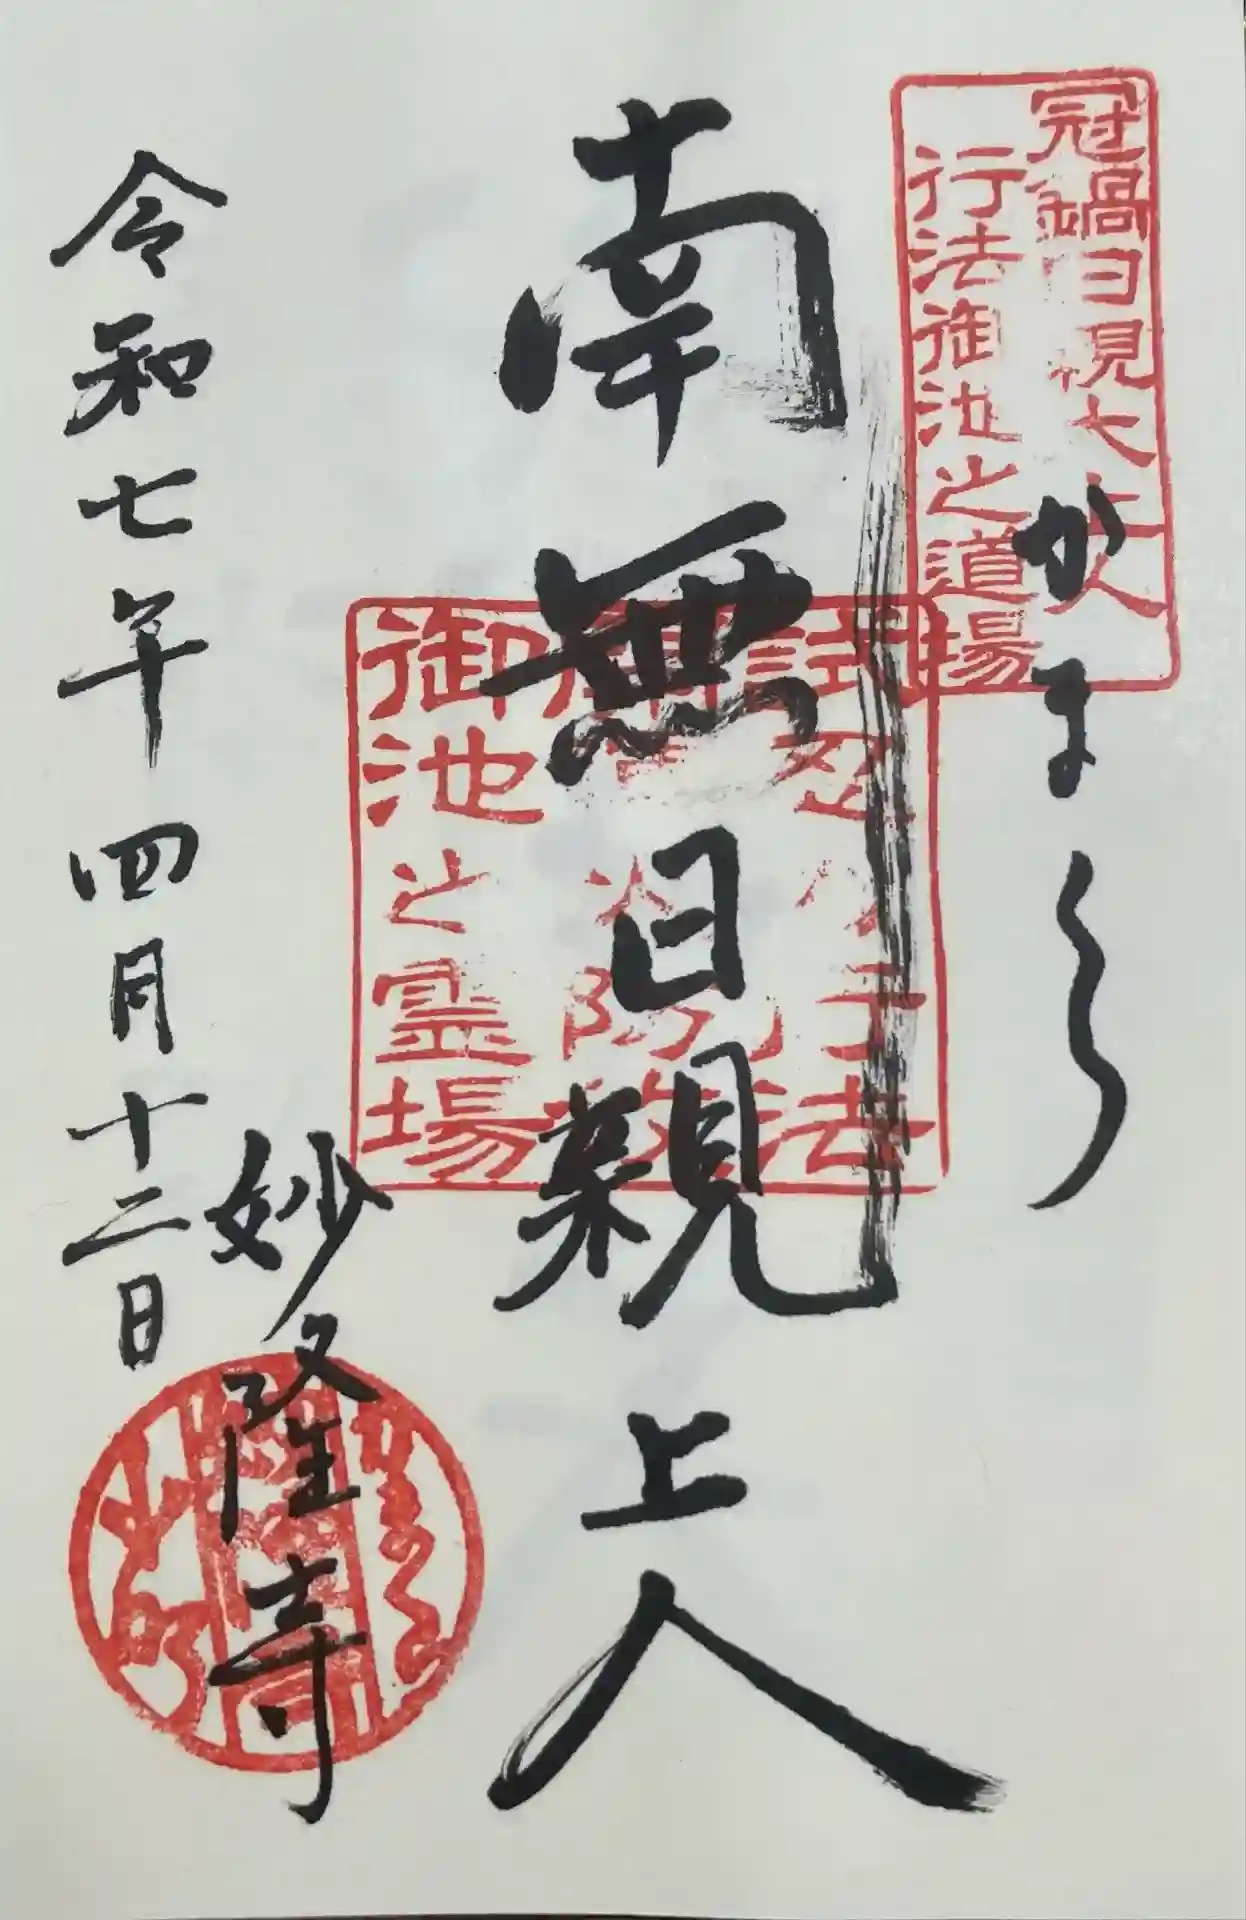 冠鍋日親上人
行法御池之道場
かまくら
南無日親上人
法
御池之霊場
妙隆寺
令和七年四月十二日